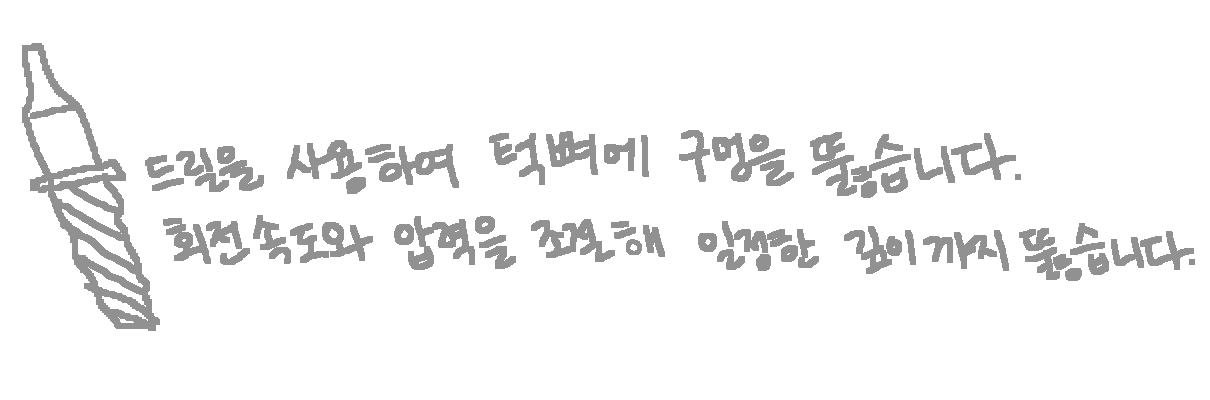 드릴을 사용하여 턱뼈에 구멍을 뚫습니다.
회전속도와 압력을 조절해 일정한 깊이까지 뚫습니다.